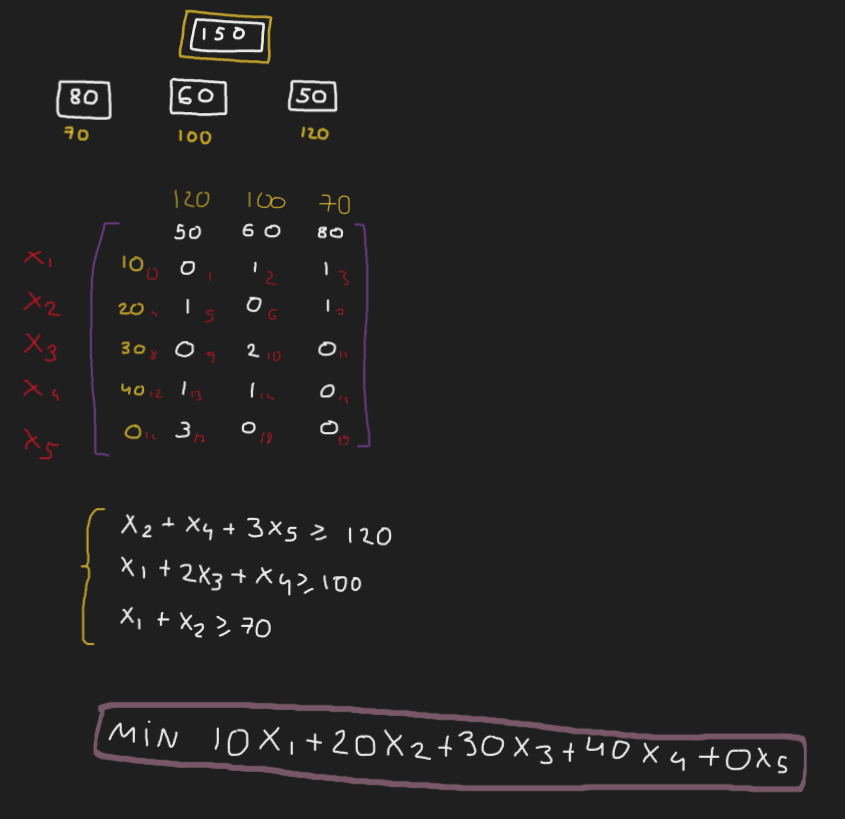 150
80 60 50
70 100 120
120 100 70
50 60 80
x₁ 10₀ 0₁ 1₂ 1₃
x₂ 20 1₅ 0₆ 1
x₃ 30₈ 0₉ 2₁₀ 0₁₁
x₄ 40₁₂ 1₁₃ 1₁₄ 0₁₅
x₅ 0 3 0₁₈ 0₁₉
x₂ + x₄ + 3x₅ ≥ 120
x₁ + 2x₃ + x₄ ≥ 100
x₁ + x₂ ≥ 70
MIN 10x₁ + 20x₂ + 30x₃ + 40x₄ + 0x₅